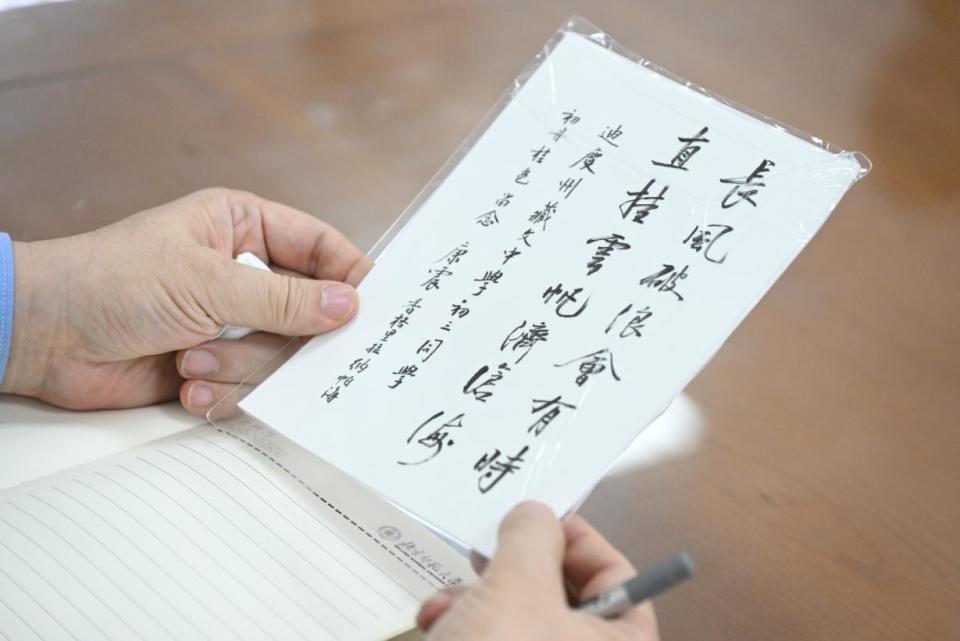 長風破浪會有時
直挂雲帆濟滄海
迪慶州藏文中學初三同學
初 留念 康震 香格里拉納帕海
北京師範大學